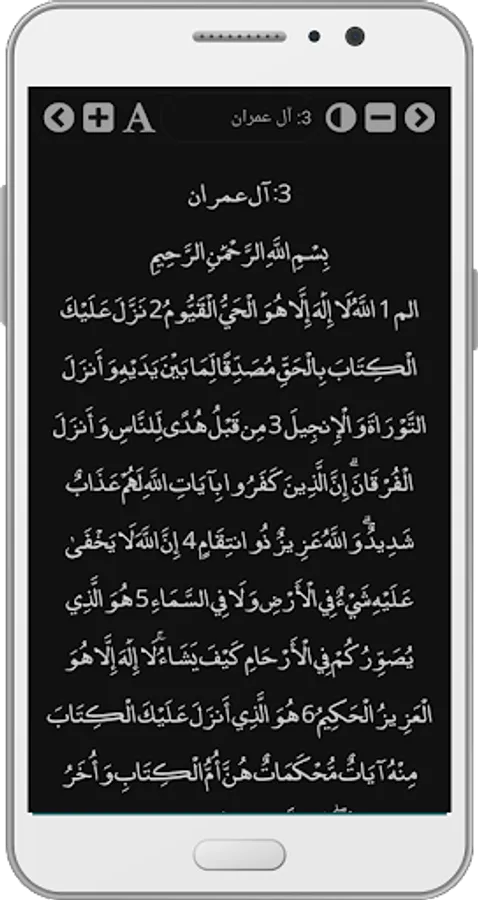 3: آل عمران
A
3: آل عمران
بِسْمِ اللَّهِ الرَّحْمَٰنِ الرَّحِيمِ
الم 1 اللَّهُ لَا إِلَٰهَ إِلَّا هُوَ الْحَيُّ الْقَيُّومُ 2 نَزَّلَ عَلَيْكَ
الْكِتَابَ بِالْحَقِّ مُصَدِّقًا لِّمَا بَيْنَ يَدَيْهِ وَأَنزَلَ
التَّوْرَاةَ وَالْإِنجِيلَ 3 مِن قَبْلُ هُدًى لِّلنَّاسِ وَأَنزَلَ
الْفُرْقَانَ ۗ إِنَّ الَّذِينَ كَفَرُوا بِآيَاتِ اللَّهِ لَهُمْ عَذَابٌ
شَدِيدٌ ۗ وَاللَّهُ عَزِيزٌ ذُو انتِقَامٍ 4 إِنَّ اللَّهَ لَا يَخْفَىٰ
عَلَيْهِ شَيْءٌ فِي الْأَرْضِ وَلَا فِي السَّمَاءِ 5 هُوَ الَّذِي
يُصَوِّرُكُمْ فِي الْأَرْحَامِ كَيْفَ يَشَاءُ ۚ لَا إِلَٰهَ إِلَّا هُوَ
الْعَزِيزُ الْحَكِيمُ 6 هُوَ الَّذِي أَنزَلَ عَلَيْكَ الْكِتَابَ
مِنْهُ آيَاتٌ مُّحْكَمَاتٌ هُنَّ أُمُّ الْكِتَابِ وَأُخَرُ